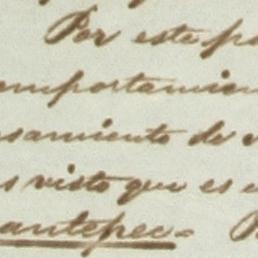 Por este p
omportamien
samiento de
s visto que es
antepec.